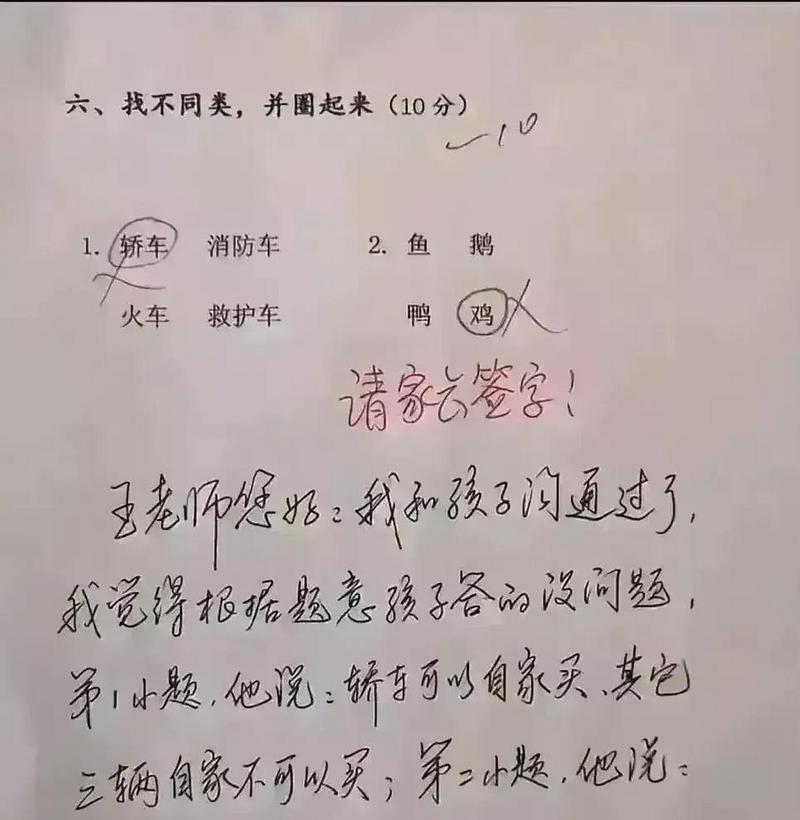 六、找不同类，并圈起来（10分）
-10
1. 轿车 消防车 2. 鱼 鹅
火车 救护车 鸭 鸡
请家长签字！
王老师您好：我和孩子沟通过了，
我觉得根据题意孩子答的没问题，
第1小题，他说：轿车可以自家买、其它
三辆自家不可以买；第二小题，他说：